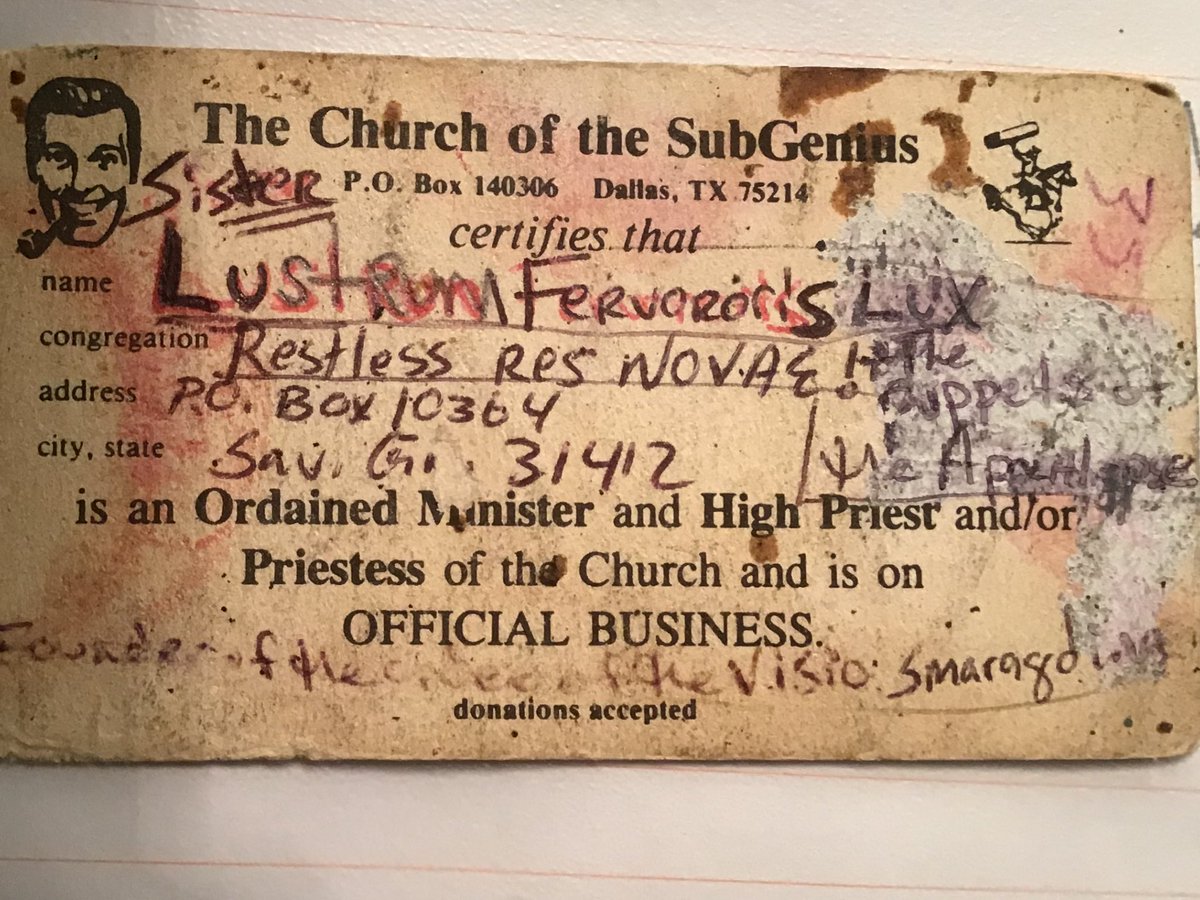 The Church of the SubGenius
Sister P.O. Box 140306 Dallas, TX 75214
certifies that
name LustRum Fervaroris LUX
congregation Restless RES NOVAE! + The
puppets of
address P.O. Box 10364
the Apocalypse
city, state Sav. Ga. 31412
is an Ordained Minister and High Priest and/or
Priestess of the Church and is on
OFFICIAL BUSINESS.
Founder of the of the Visio: Smaragdinus
donations accepted